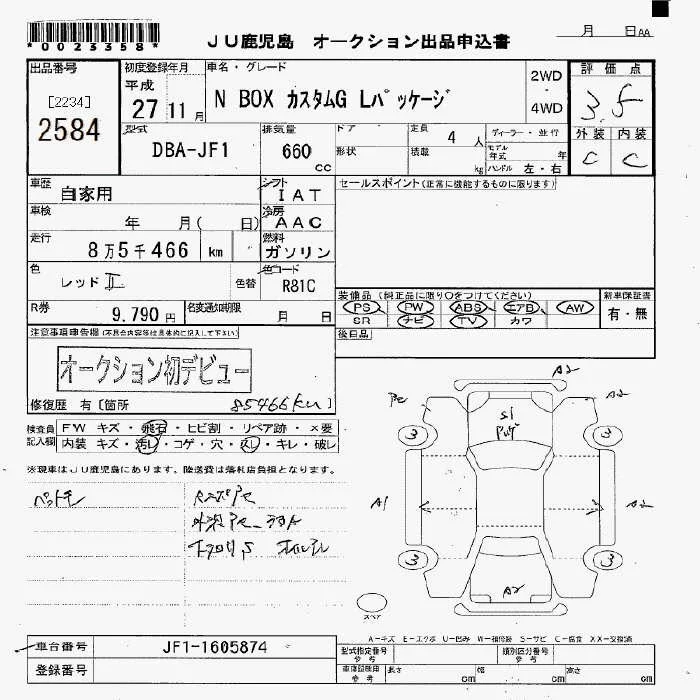 *0023358*
JU鹿児島 オークション出品申込書
月 日 AA
出品番号
[2234]
2584
初度登録年月
平成
27 11月
車名・グレード
N BOX カスタムG Lパッケージ
2WD
・
4WD
評価点
3.5
外装 内装
C C
型式
DBA-JF1
排気量
660
cc
ドア
形状
定員 4 人
積載 kg
ディーラー・並行
モデル年式 年
ハンドル 左・右
車歴
自家用
シフト
IAT
車検
年 月( 日)
冷房
AAC
走行
8万5千466 km
燃料
ガソリン
色
レッドII
色替
色コード
R81C
R券
9,790 円
名変通知期限
月 日
セールスポイント(正常に機能するものに限ります)
装備品(純正品に限り○をつけてください)
PS PW ABS エアB AW
SR ナビ TV カワ
新車保証書
有・無
後日品
注意事項申告欄(不具合内容等は具体的に記入して下さい)
オークション初デビュー
修復歴 有〔箇所 85466km〕
検査員記入欄
FW キズ・飛石・ヒビ割・リペア跡・×要
内装 キズ・汚れ・コゲ・穴・スレ・キレ・破レ
※現車はJU鹿児島にあります。陸送費は落札店負担となります。
A2
A2
3
3
A1
A2
3
3
A2
スペア
A-キズ E-エクボ U-凹み W-補修跡 S-サビ C-腐食 XX-交換済
車台番号
JF1-1605874
登録番号
型式指定番号
参考
類別区分番号
参考
車庫証明用
参考
長さ cm
幅 cm
高さ cm